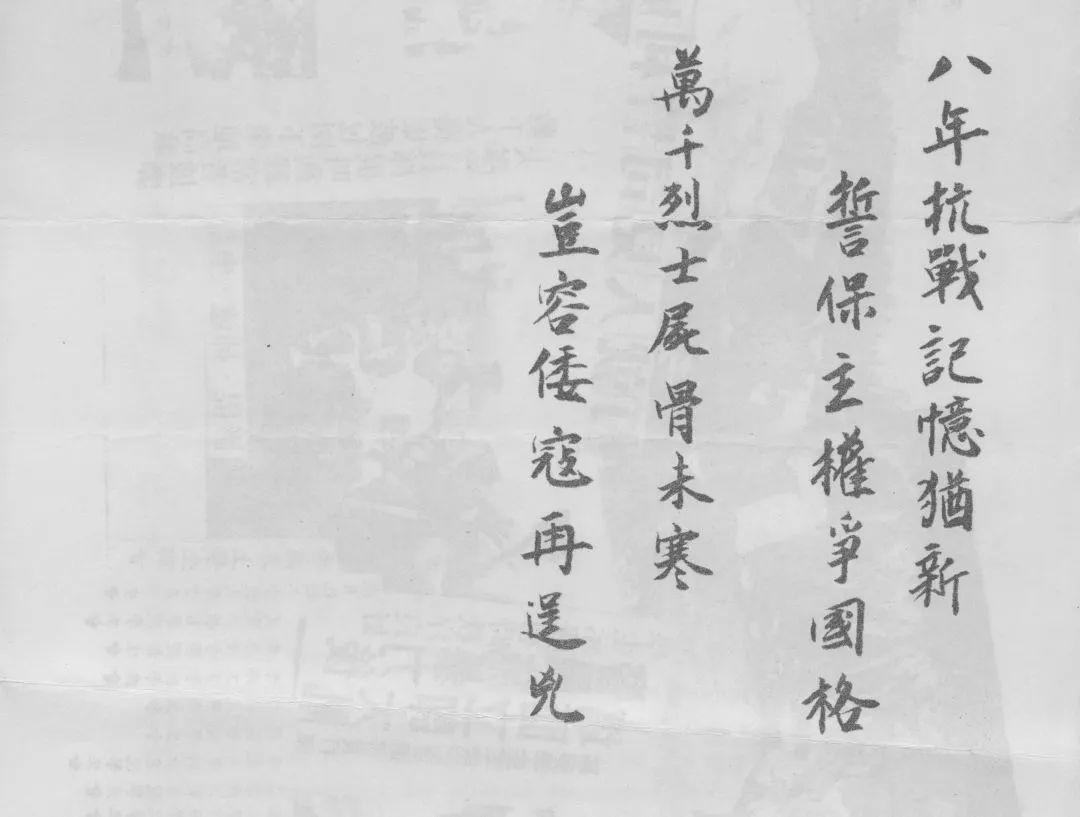 八年抗戰記憶猶新
誓保主權爭國格
萬千烈士屍骨未寒
豈容倭寇再逞兇